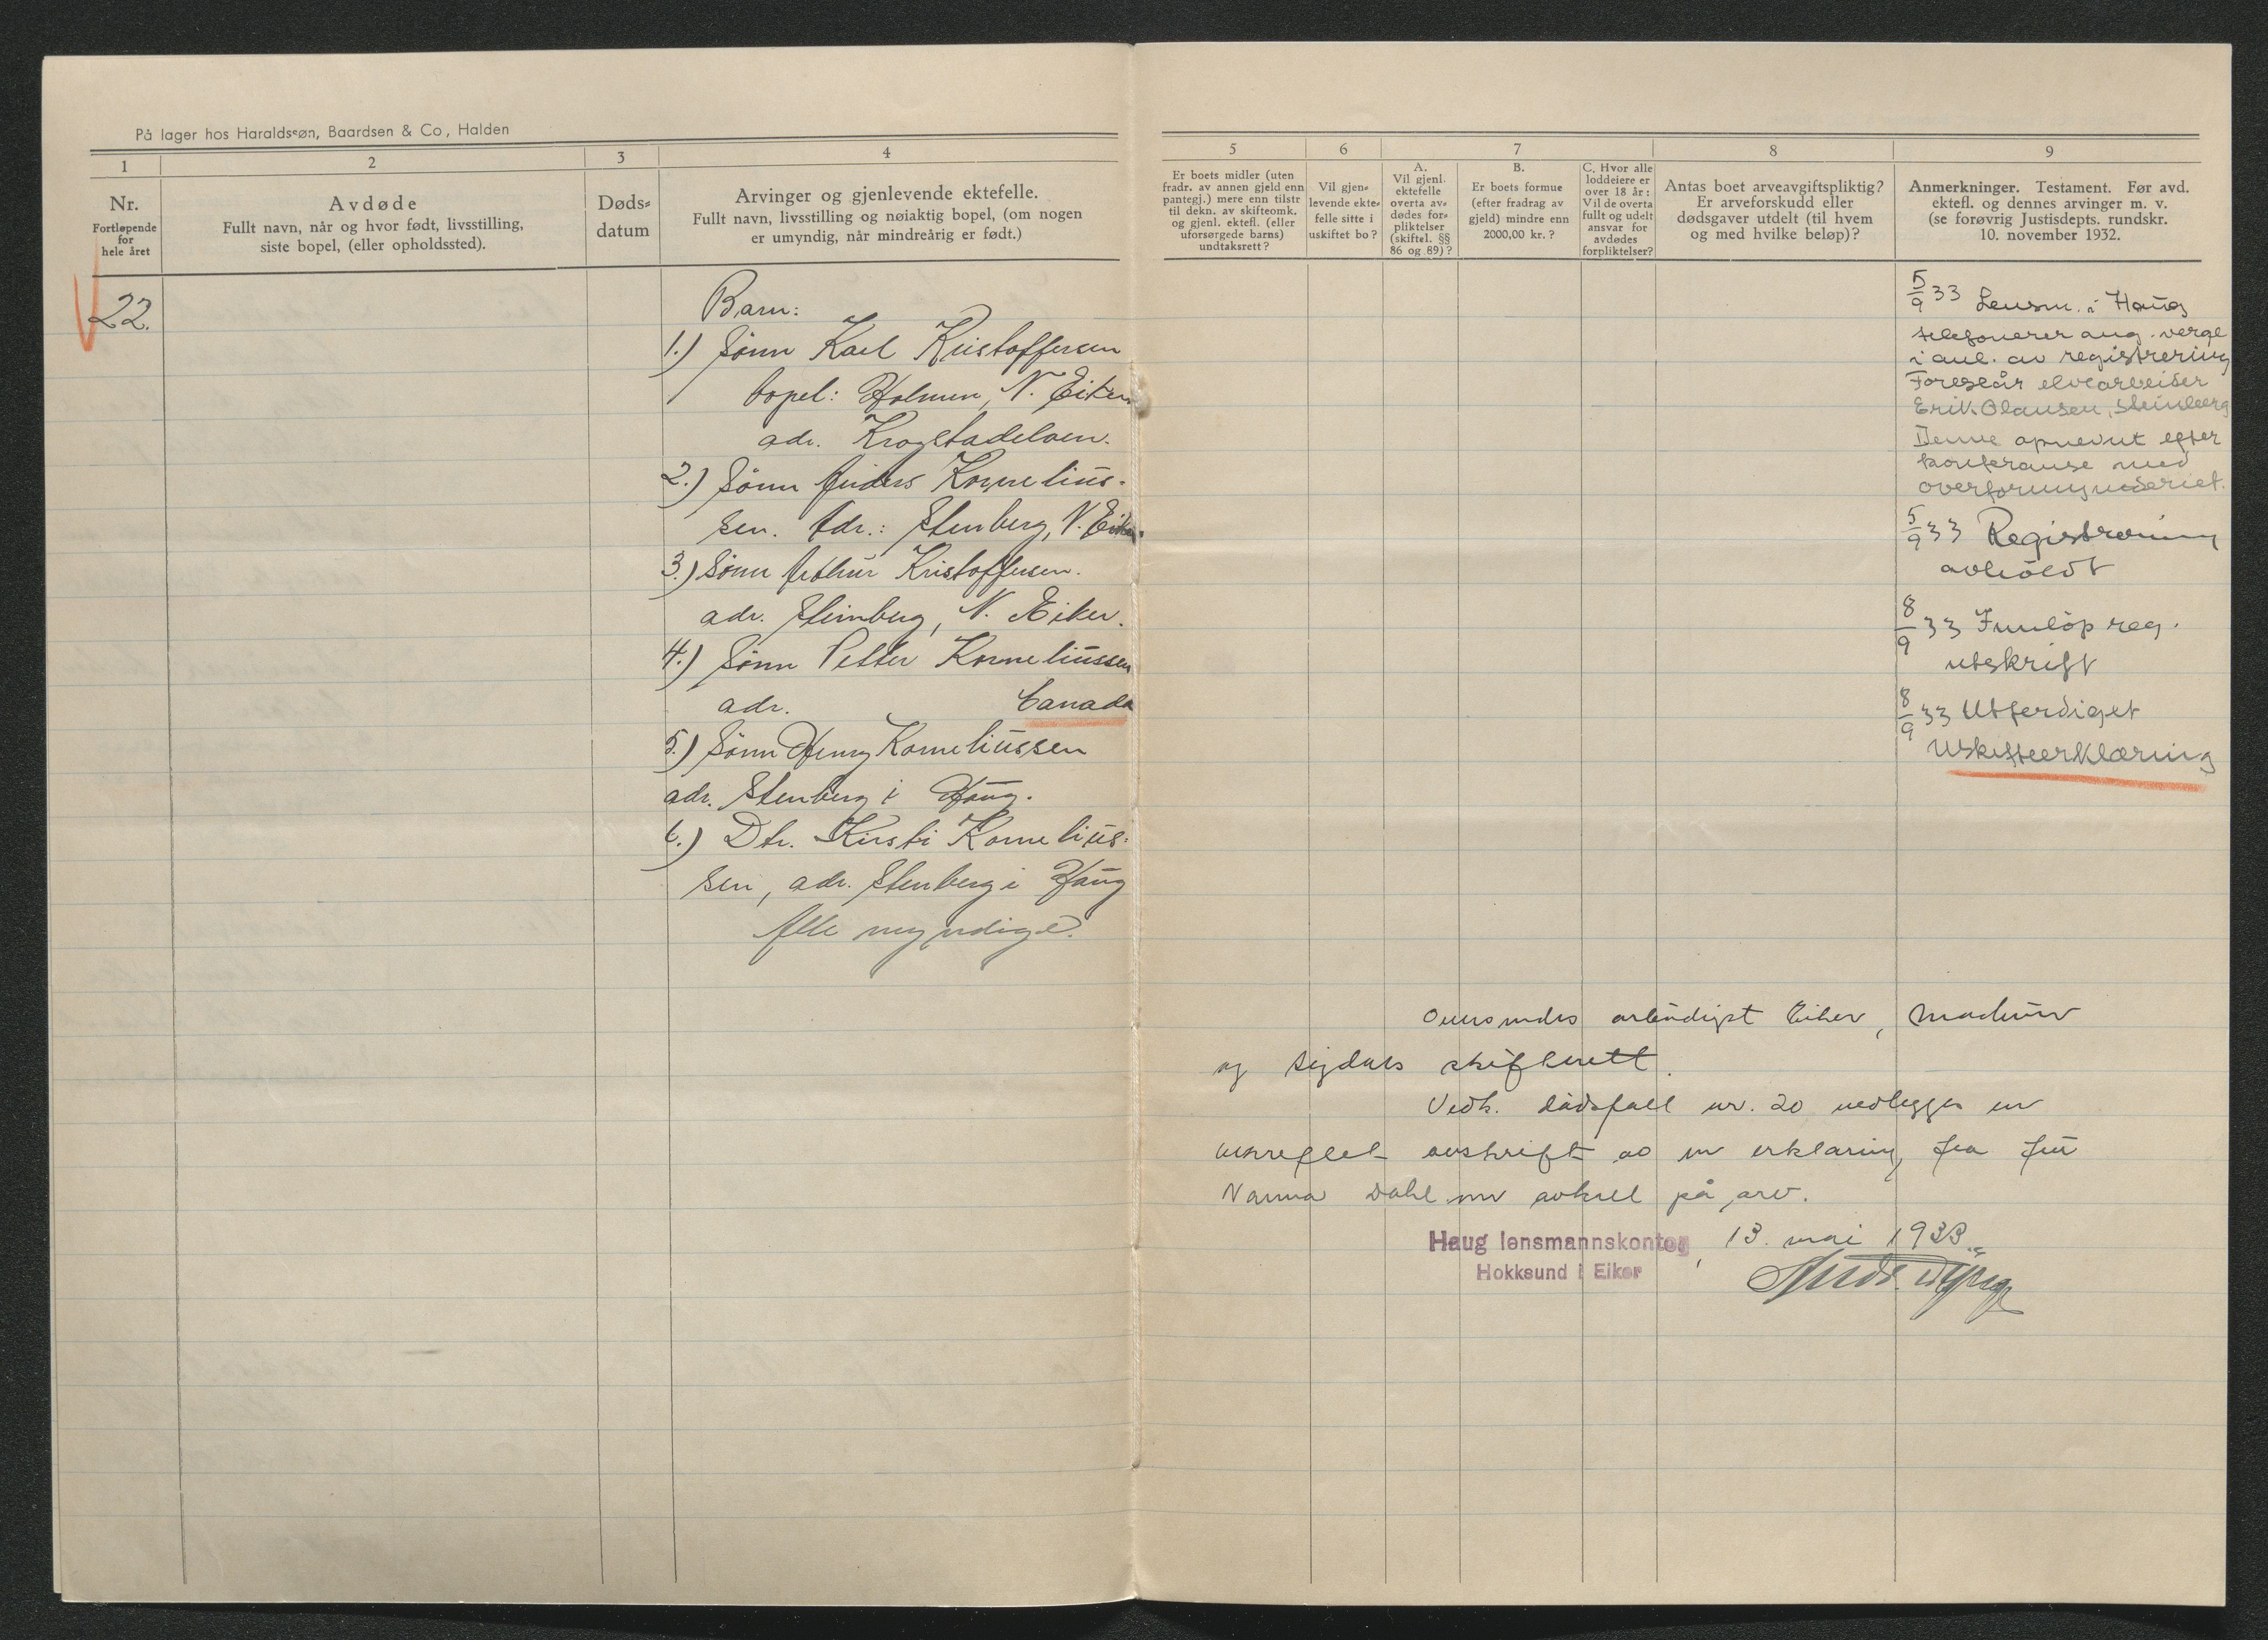 På lager hos Haraldssøn, Baardsen & Co, Halden
1
2
3
4
Nr.
Fortløpende
for
hele året
Avdøde
Fullt navn, når og hvor født, livsstilling,
siste bopel, (eller opholdssted).
Døds-
datum
Arvinger og gjenlevende ektefelle.
Fullt navn, livsstilling og nøiaktig bopel, (om nogen
er umyndig, når mindreårig er født.)
22.
Barn:
1.) Sønn Karl Kristoffersen
bopel: Holmen, N. Eiker
adr. Krogstadelven.
2.) Sønn Anders Kornelius-
sen. Adr.: Stenberg, N. Eiker.
3.) Sønn Arthur Kristoffersen.
adr. Steinberg, N. Eiker.
4.) Sønn Petter Korneliussen
adr. Canada
5.) Sønn Henry Korneliussen
adr. Stenberg i Haug.
6.) Dtr. Kirsti Kornelius-
sen, adr. Stenberg i Haug
Alle myndige.
5
6
7
8
9
Er boets midler (uten
fradr. av annen gjeld enn
pantegj.) mere enn tilstr
til dekn. av skifteomk.
og gjenl. ektefl. (eller
uforsørgede barns)
undtaksrett?
Vil gjen-
levende ekte-
felle sitte i
uskiftet bo?
A.
Vil gjenl.
ektefelle
overta av-
dødes for-
pliktelser
(skiftel. §§
86 og 89)?
B.
Er boets formue
(efter fradrag av
gjeld) mindre enn
2000,00 kr.?
C. Hvor alle
loddeiere er
over 18 år:
Vil de overta
fullt og udelt
ansvar for
avdødes
forpliktelser?
Antas boet arveavgiftspliktig?
Er arveforskudd eller
dødsgaver utdelt (til hvem
og med hvilke beløp)?
Anmerkninger. Testament. Før avd.
ektefl. og dennes arvinger m. v.
(se forøvrig Justisdepts. rundskr.
10. november 1932.
5/9 33 Lensm. i Haug
telefonerer ang. verge
i anl. av registrering
Foreslår elvearbeider
Erik Olausen, Steinberg
Denne opnevnt efter
konferanse med
overformynderiet.
5/9 33 Registrering
avholdt
8/9 33 Innløp reg.
utskrift
8/9 33 Utferdiget
Uskifteerklæring
Oversendes ærbødigst Eiker, Modum
og Sigdals skifterett.
Vedk. dødsfall nr. 20 vedlegges en
avskrift av en erklæring fra fru
Nanna Dahl om avkall på arv.
Haug lensmannskontor, 13. mai 1933.
Hokksund i Eiker